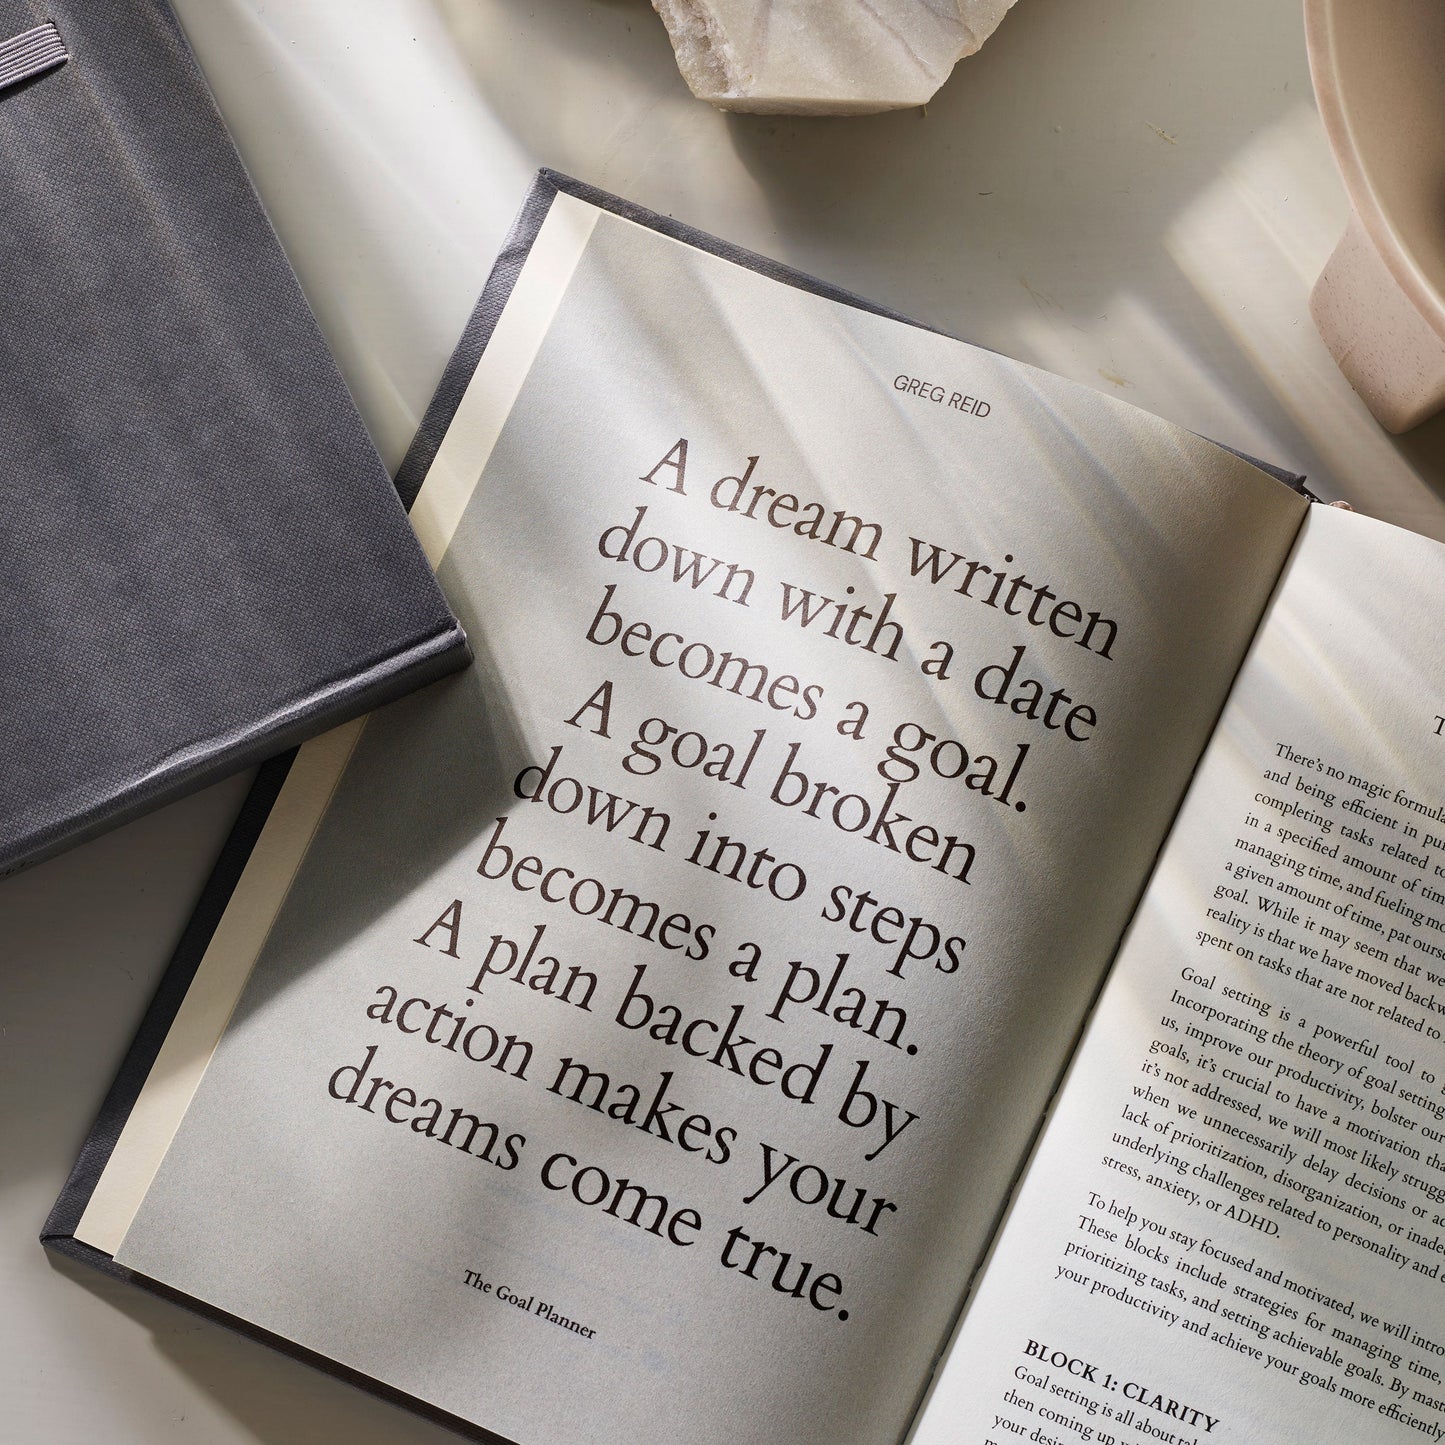 GREG REID
A dream written
down with a date
becomes a goal.
A goal broken
down into steps
becomes a plan.
A plan backed by
action makes your
dreams come true.
The Goal Planner
There's no magic formula
and being efficient in
completing tasks related
in a specified amount of
managing time, and fueling
a given amount of time, pat
goal. While it may seem that
reality is that we have moved
spent on tasks that are not related to
Goal setting is a powerful tool to
Incorporating the theory of goal setting
us, improve our productivity, bolster our
goals, it's crucial to have a motivation
it's not addressed, we will most likely
when we unnecessarily delay decisions or
lack of prioritization, disorganization, or
underlying challenges related to personality and
stress, anxiety, or ADHD.
To help you stay focused and motivated, we will
These blocks include strategies for managing time,
prioritizing tasks, and setting achievable goals. By
your productivity and achieve your goals more efficiently
BLOCK 1: CLARITY
Goal setting is all about
then coming up
your